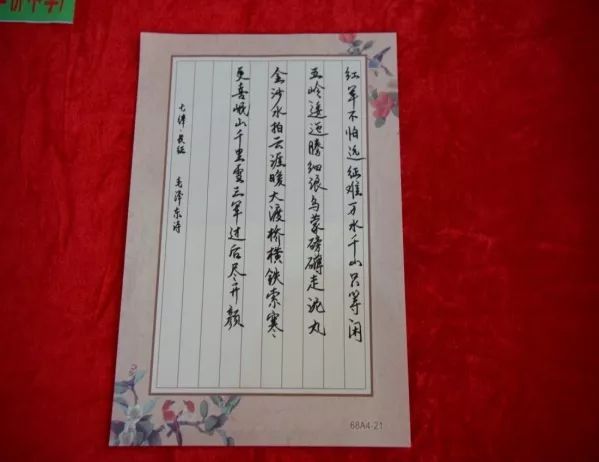 红军不怕远征难万水千山只等闲
五岭逶迤腾细浪乌蒙磅礴走泥丸
金沙水拍云崖暖大渡桥横铁索寒
更喜岷山千里雪三军过后尽开颜
七律·长征 毛泽东诗
68A4-21